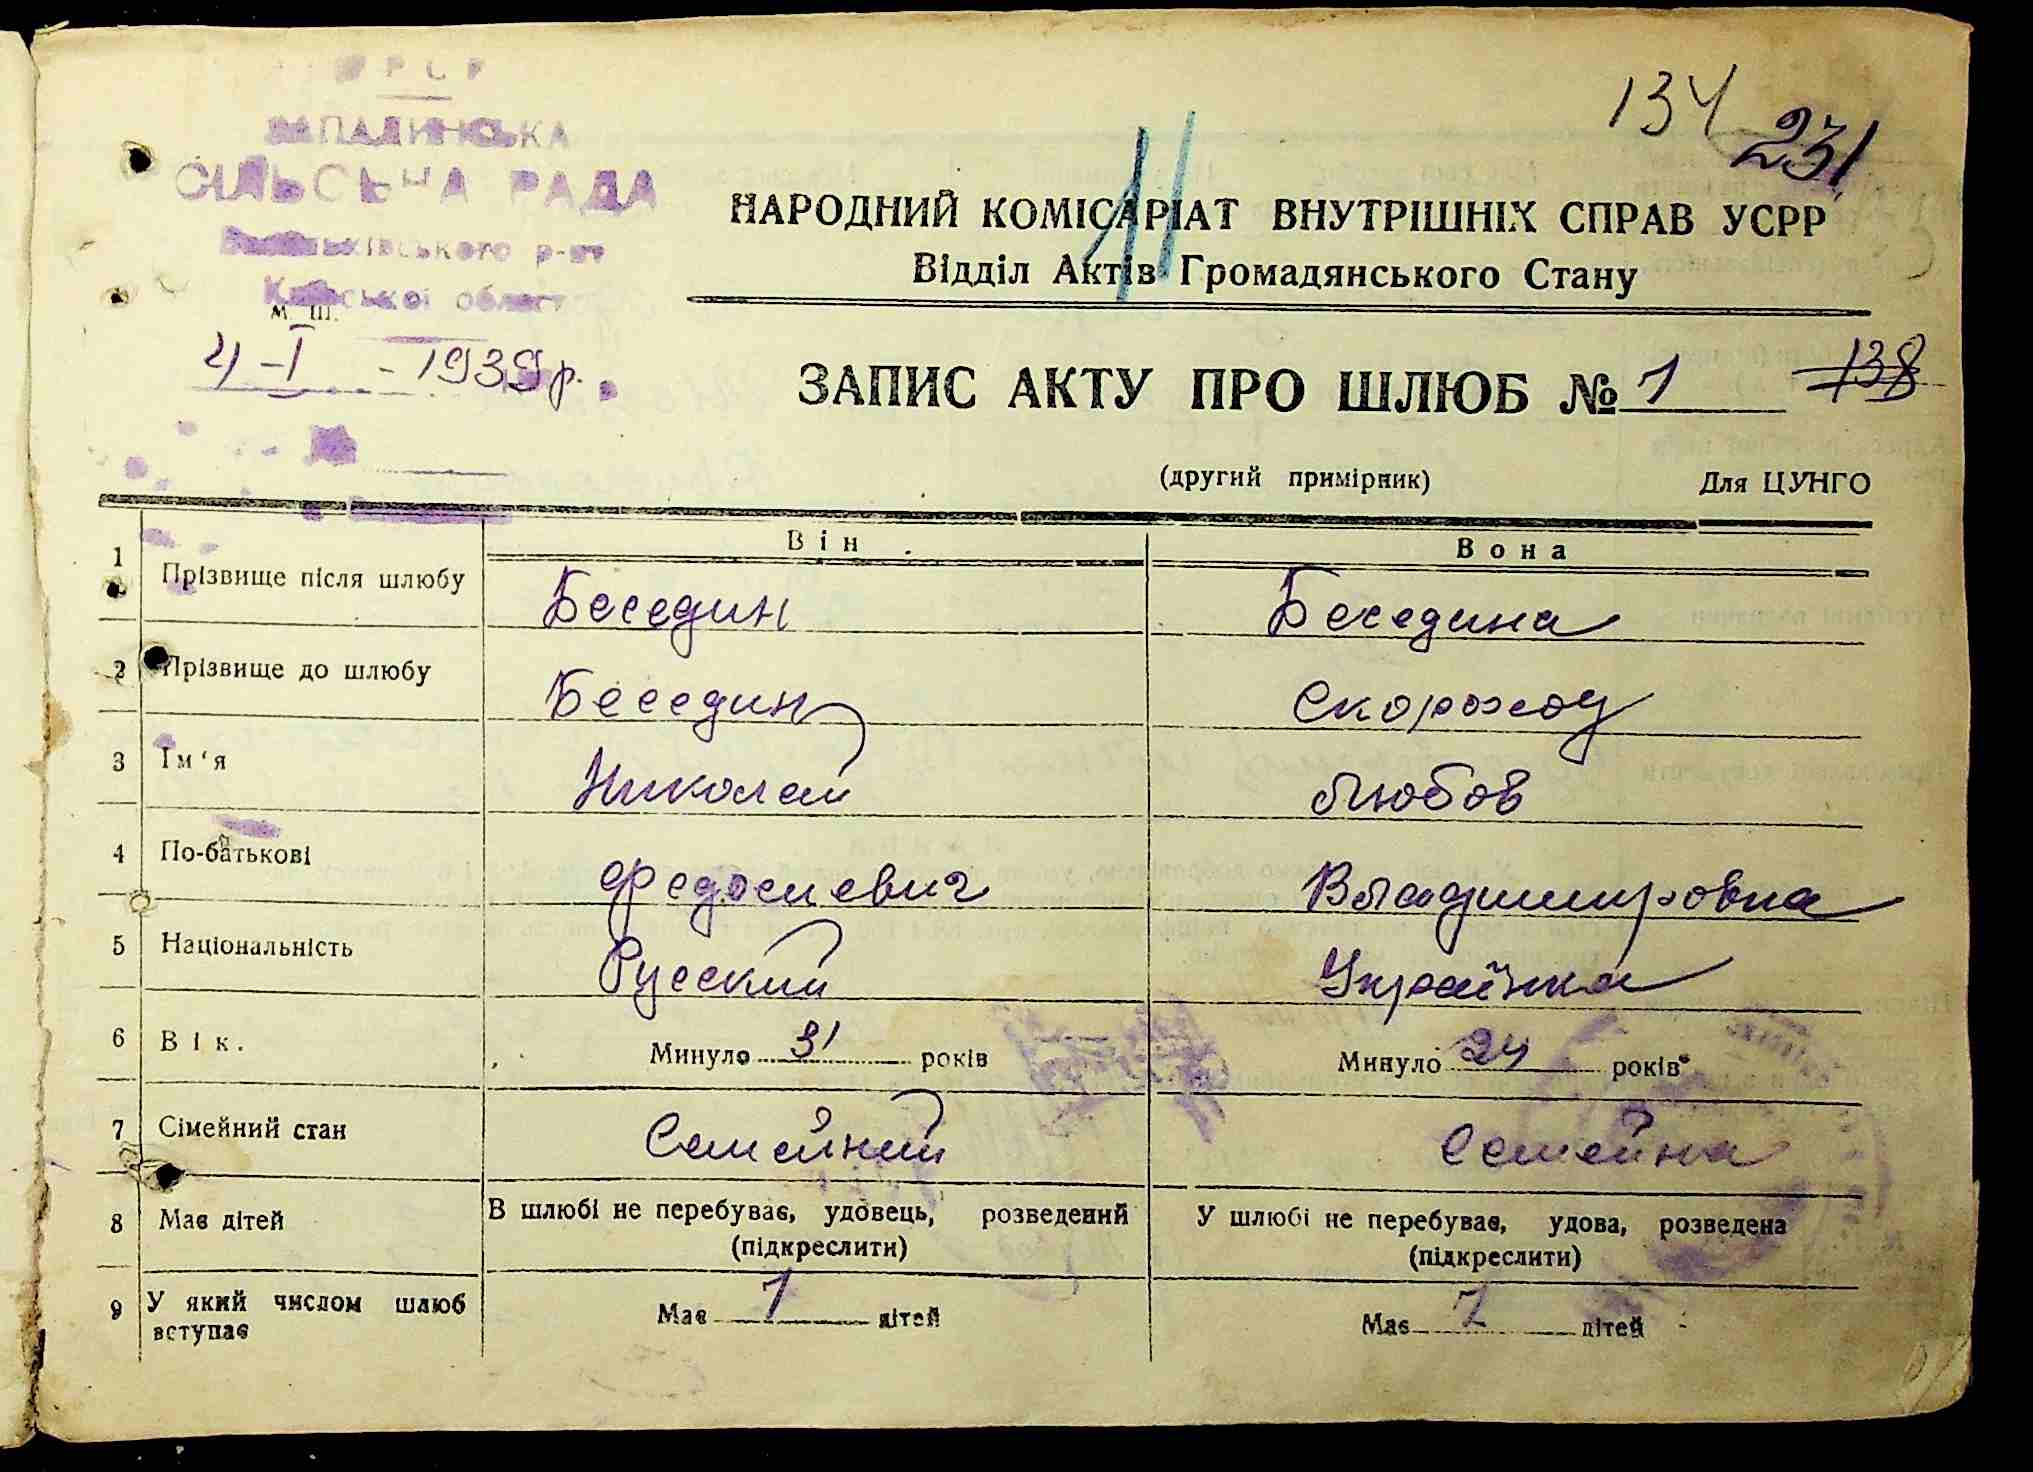 УРСР
ЗАПАДИНСЬКА
СІЛЬСЬКА РАДА
Васильківського р-ну
Київської області
М. Ш.
4-I - 1939 р.
134
231
11
НАРОДНИЙ КОМІСАРІАТ ВНУТРІШНІХ СПРАВ УСРР
Відділ Актів Громадянського Стану
ЗАПИС АКТУ ПРО ШЛЮБ № 1
138
(другий примірник) Для ЦУНГО
Він Вона
1 Прізвище після шлюбу Беседин Беседина
2 Прізвище до шлюбу Беседин Скороход
3 Ім'я Николай Любов
4 По-батькові Федосиевич Владимировна
5 Національність Русский Українка
6 Вік. Минуло 31 років Минуло 24 років
7 Сімейний стан Семейний Семейна
8 Має дітей В шлюбі не перебуває, удовець, розведений У шлюбі не перебуває, удова, розведена
(підкреслити) (підкреслити)
9 У який числом шлюб Має 1 дітей Має 1 дітей
вступає